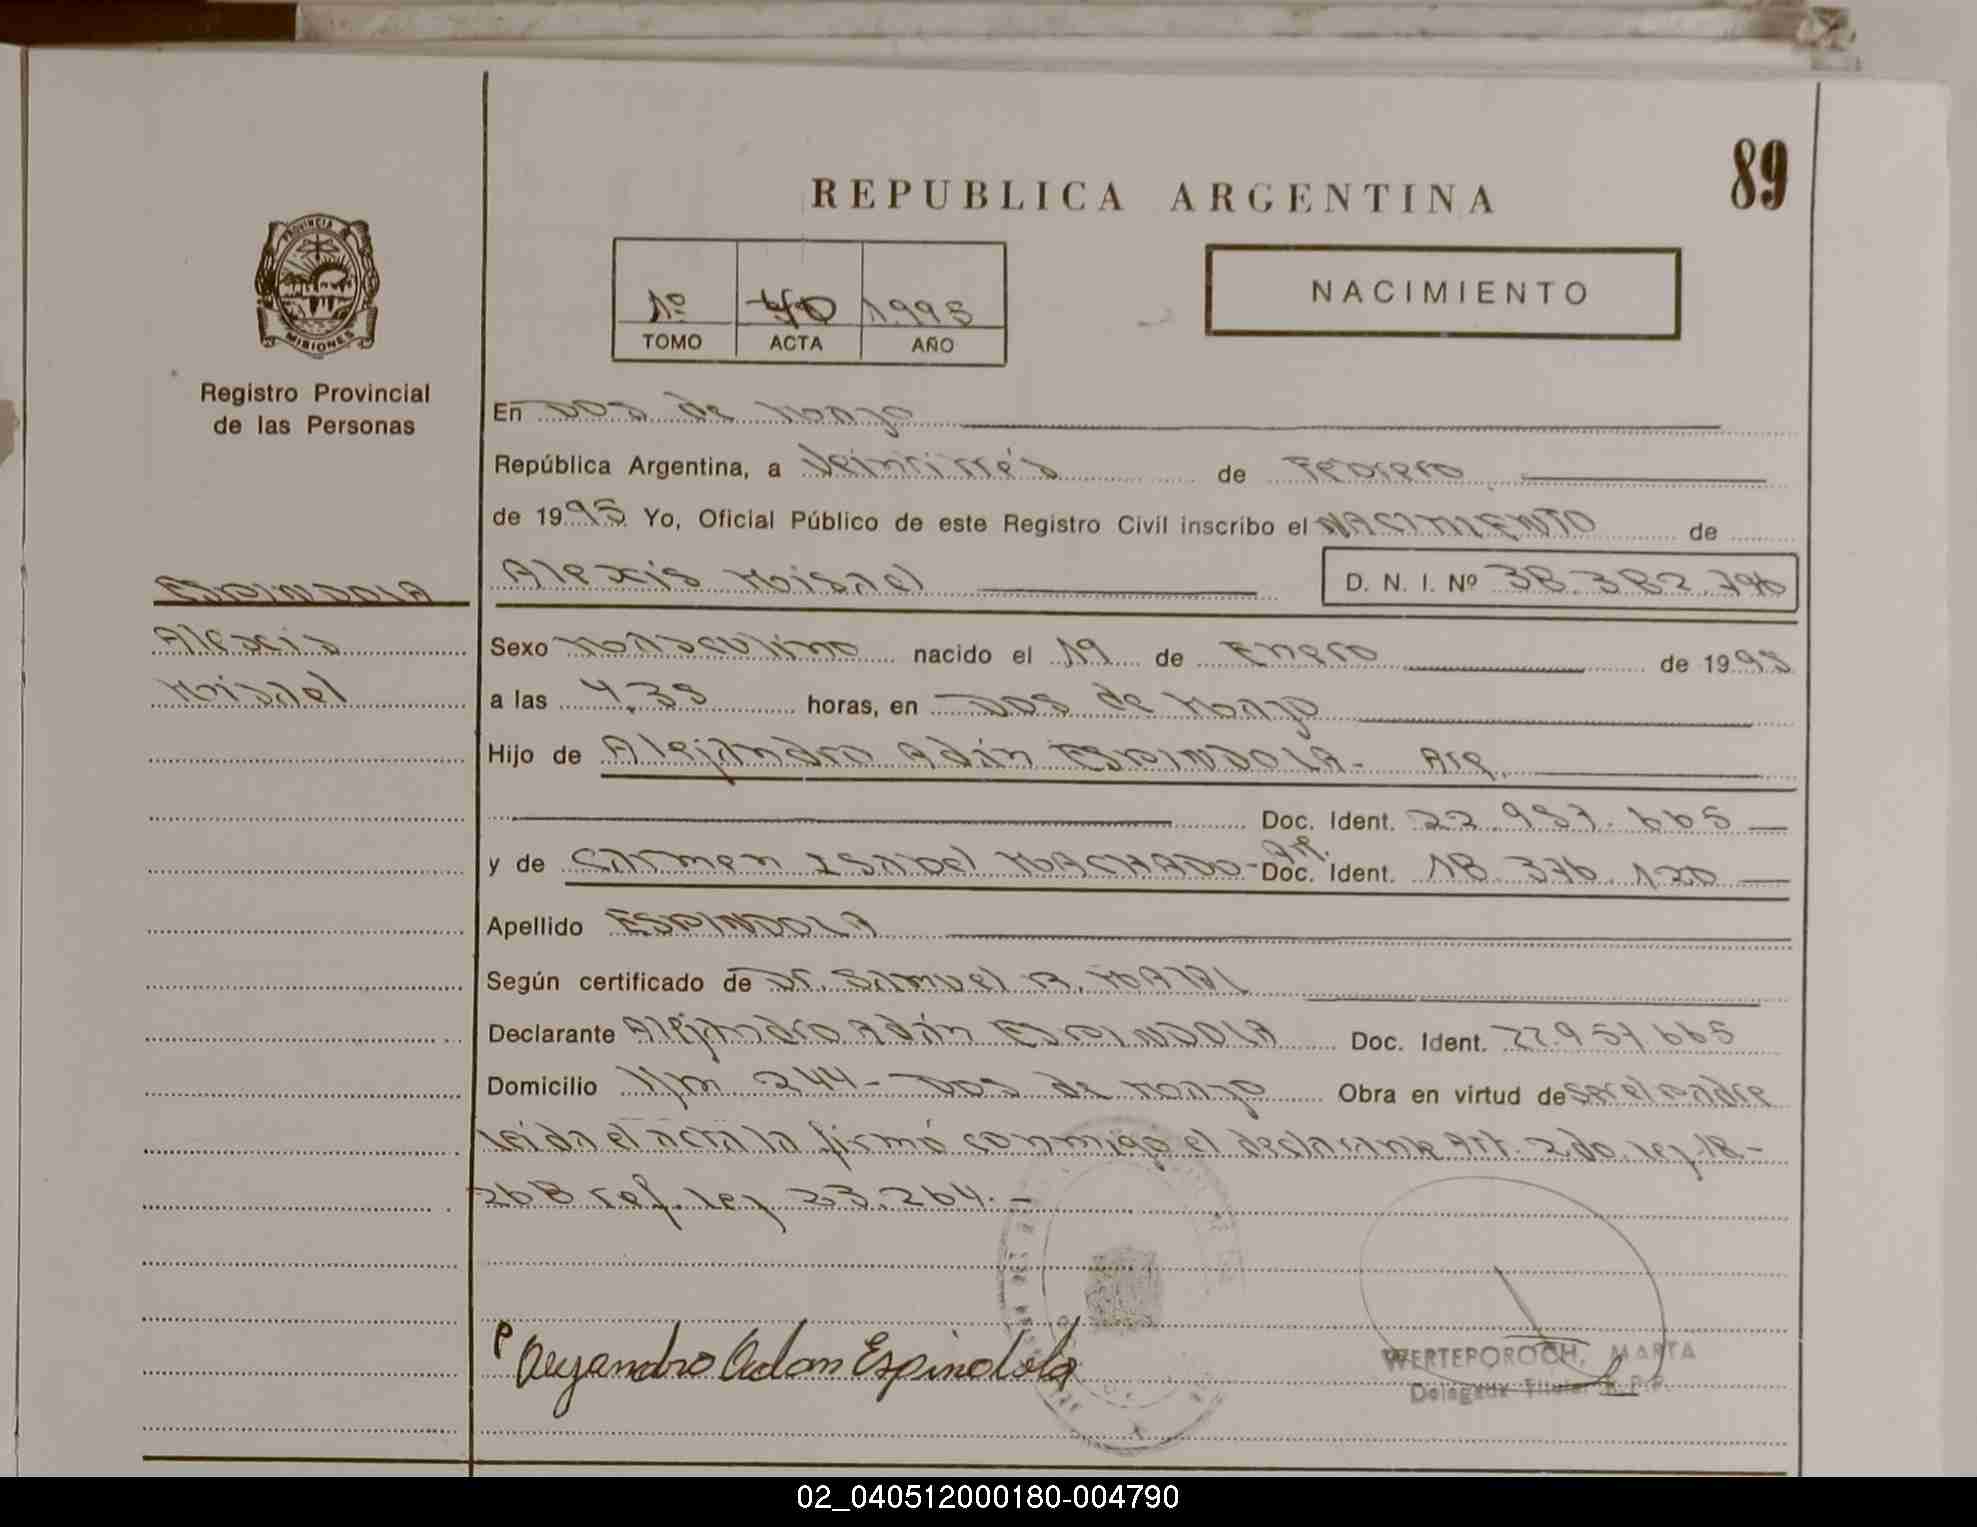 89
REPUBLICA ARGENTINA
PROVINCIA
MISIONES
Registro Provincial
de las Personas
1º 40 1995
TOMO ACTA AÑO
NACIMIENTO
En Dos de Mayo
República Argentina, a Veintitrés de Febrero
de 1995 Yo, Oficial Público de este Registro Civil inscribo el NACIMIENTO de
Alexis Misael D. N. I. Nº 38.382.796
ESPINDOLA
Alexis
Misael
Sexo Masculino nacido el 19 de Enero de 1995
a las 4,35 horas, en Dos de Mayo
Hijo de Alejandro Adán ESPINDOLA - Arg.
Doc. Ident. 22.957.665
y de Carmen Isabel MACHADO - Ar. Doc. Ident. 18.376.120
Apellido ESPINDOLA
Según certificado de Dr. Samuel R.
Declarante Alejandro Adán ESPINDOLA Doc. Ident. 22.957.665
Domicilio 244 - Dos de Mayo Obra en virtud de ser el padre
leida el acta la firmó conmigo el declarante Art. 2do. ley 18-
268 ref. ley 23.264. -
P Alejandro Adan Espindola
WERTEPOROCH, MARTA
Delegada Titular R.P.P.
02_040512000180-004790